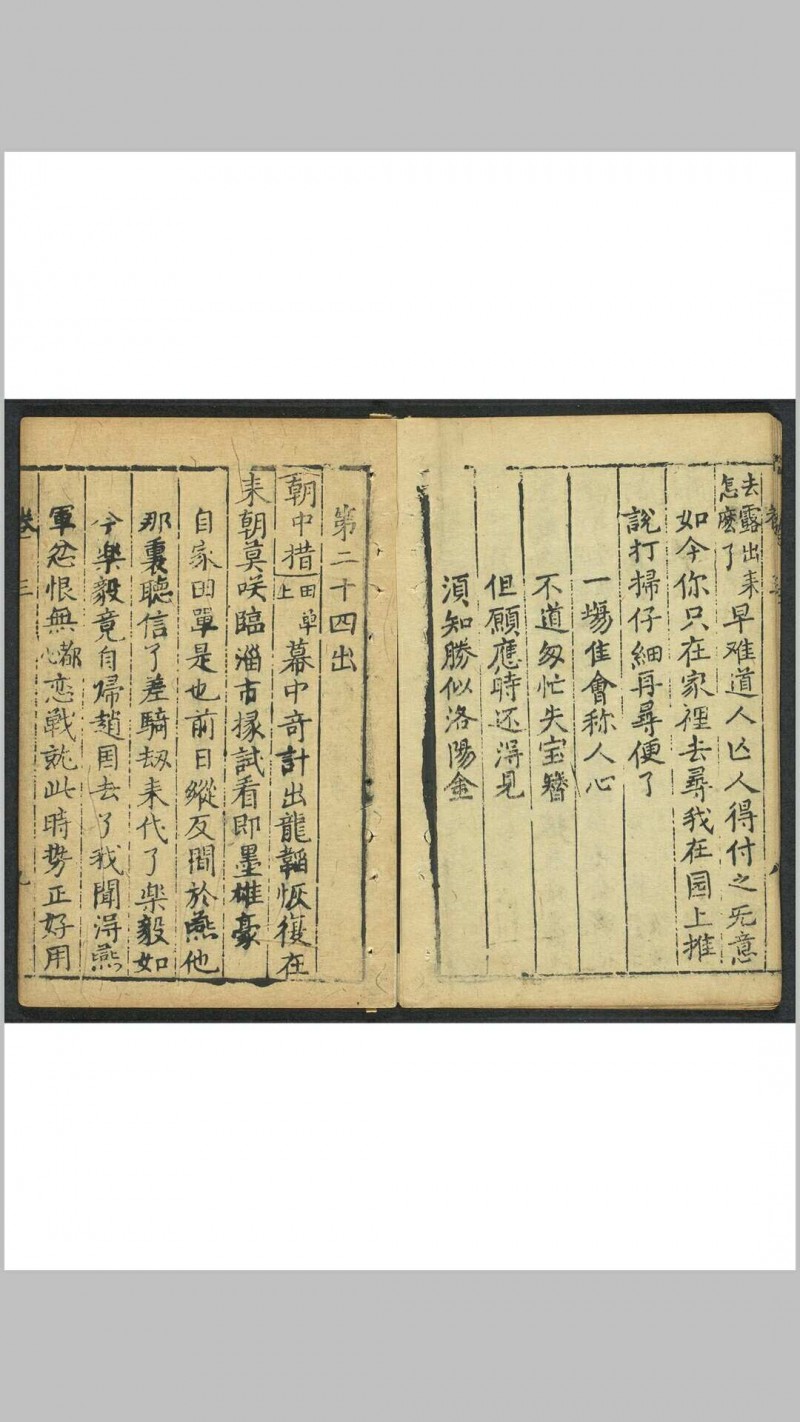 去露出来
怎麽了
早难道人亾人得付之旡意
如今你只在家裡去尋我在园上推
說打掃仔細再尋便了
一塲佳會称人心
不道匆忙失宝簪
但願應時还淂見
湏知勝似洛陽金
第二十四出
朝中措
田单
上
幕中奇計出龍韜恢復在
来朝莫咲臨淄市掾試看即墨雄豪
自家田單是也前日縱反間於燕他
那裏聽信了差騎刼来代了楽毅如
今楽毅竟自歸趙国去了我聞淂燕
軍忿恨無
都
心
恋戰就此時势正好用
卷三